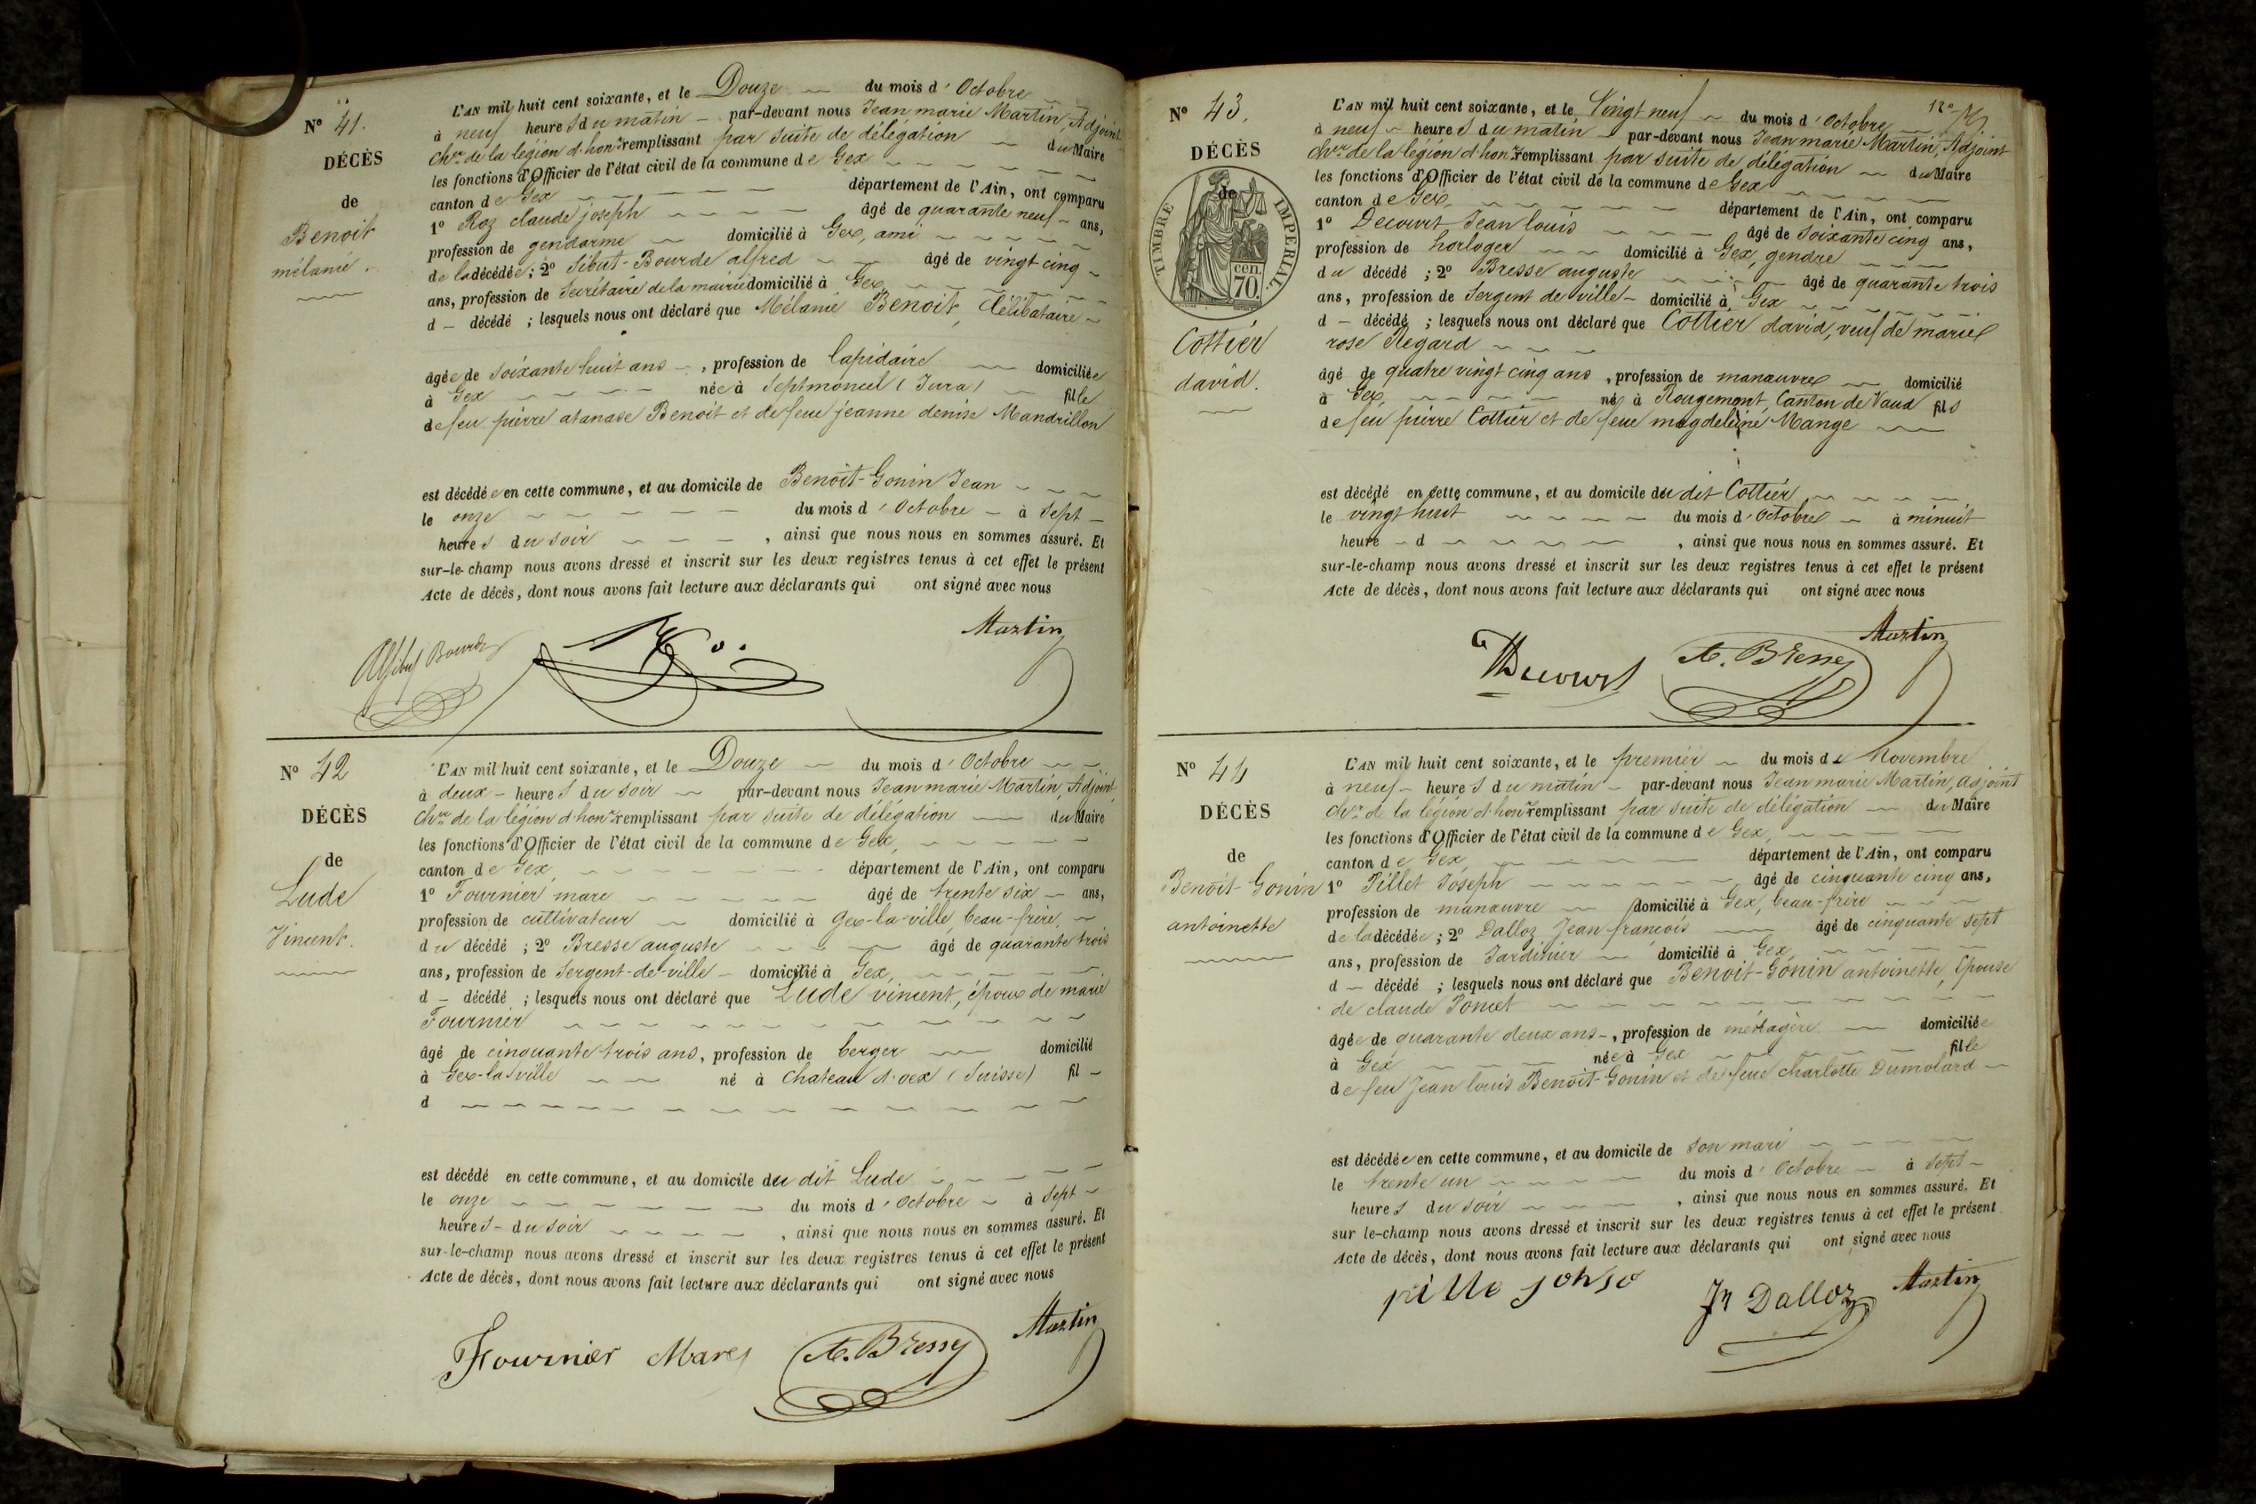 N° 41.
DÉCÈS
de
Benoit
mélanie.
L'AN mil huit cent soixante, et le Douze du mois d'Octobre
à neuf heures du matin par-devant nous Jean marie Martin, Adjoint
chvr de la légion d'honr remplissant par suite de délégation du Maire
les fonctions d'Officier de l'état civil de la commune de Gex
canton de Gex département de l'Ain, ont comparu
1° Roz claude joseph âgé de quarante neuf ans,
profession de gendarme domicilié à Gex, ami
de la décédée; 2° Sibut-Bourde alfred âgé de vingt cinq
ans, profession de Secrétaire de la mairie domicilié à Gex
d décédé; lesquels nous ont déclaré que Mélanie Benoit, Célibataire
âgée de soixante huit ans, profession de lapidaire domiciliée
à Gex née à Septmoncel (Jura) fille
de feu pierre atanase Benoit et de feue jeanne denise Mandrillon
est décédée en cette commune, et au domicile de Benoit-Gonin Jean
le onze du mois d'Octobre à Sept
heures du soir, ainsi que nous nous en sommes assuré. Et
sur-le-champ nous avons dressé et inscrit sur les deux registres tenus à cet effet le présent
Acte de décès, dont nous avons fait lecture aux déclarants qui ont signé avec nous
Martin
N° 42
DÉCÈS
de
Lude
Vincent.
L'AN mil huit cent soixante, et le Douze du mois d'Octobre
à deux heures du soir par-devant nous Jean marie Martin, Adjoint,
chvr de la légion d'honr remplissant par suite de délégation du Maire
les fonctions d'Officier de l'état civil de la commune de Gex,
canton de Gex, département de l'Ain, ont comparu
1° Fournier marc âgé de trente six ans,
profession de cultivateur domicilié à Gex-la-ville, beau-frère
du décédé; 2° Bresse auguste âgé de quarante trois
ans, profession de Sergent-de-ville domicilié à Gex,
d décédé; lesquels nous ont déclaré que Lude vincent, époux de marie
Fournier
âgé de cinquante trois ans, profession de berger domicilié
à Gex-la-ville né à Chateau d'oex (Suisse) fil
d
est décédé en cette commune, et au domicile du dit Lude
le onze du mois d'Octobre à Sept
heures du soir, ainsi que nous nous en sommes assuré. Et
sur-le-champ nous avons dressé et inscrit sur les deux registres tenus à cet effet le présent
Acte de décès, dont nous avons fait lecture aux déclarants qui ont signé avec nous
Fournier Marc A. Bresse Martin
N° 43.
DÉCÈS
de
TIMBRE IMPERIAL.
cen.
70.
Cottier
david.
L'AN mil huit cent soixante, et le Vingt neuf du mois d'Octobre
à neuf heures du matin par-devant nous Jean marie Martin, Adjoint
chvr de la légion d'honr remplissant par suite de délégation du Maire
les fonctions d'Officier de l'état civil de la commune de Gex
canton de Gex, département de l'Ain, ont comparu
1° Decourt Jean louis âgé de soixante cinq ans,
profession de horloger domicilié à Gex, gendre
du décédé; 2° Bresse auguste âgé de quarante trois
ans, profession de Sergent de ville domicilié à Gex
d décédé; lesquels nous ont déclaré que Cottier david, veuf de marie
rose Regard
âgé de quatre vingt cinq ans, profession de manœuvre domicilié
à Gex, né à Rougemont Canton de Vaud fils
de feu pierre Cottier et de feue magdeleine Mange
est décédé en cette commune, et au domicile du dit Cottier
le vingt huit du mois d'Octobre à minuit
heure d, ainsi que nous nous en sommes assuré. Et
sur-le-champ nous avons dressé et inscrit sur les deux registres tenus à cet effet le présent
Acte de décès, dont nous avons fait lecture aux déclarants qui ont signé avec nous
Decourt A. Bresse Martin
N° 44
DÉCÈS
de
Benoit-Gonin
antoinette
L'AN mil huit cent soixante, et le premier du mois de Novembre
à neuf heures du matin par-devant nous Jean marie Martin, adjoint
chvr de la légion d'honr remplissant par suite de délégation du Maire
les fonctions d'Officier de l'état civil de la commune de Gex,
canton de Gex département de l'Ain, ont comparu
1° Pillet Joseph âgé de cinquante cinq ans,
profession de manœuvre domicilié à Gex, beau-frère
de la décédée; 2° Dalloz Jean françois âgé de cinquante sept
ans, profession de Jardinier domicilié à Gex,
d décédé; lesquels nous ont déclaré que Benoit-Gonin antoinette, Epouse
de claude Poncet
âgée de quarante deux ans, profession de ménagère domiciliée
à Gex née à Gex fille
de feu Jean louis Benoit-Gonin et de feue charlotte Dumolard
est décédée en cette commune, et au domicile de son mari
le trente un du mois d'Octobre à sept
heures du soir, ainsi que nous nous en sommes assuré. Et
sur le-champ nous avons dressé et inscrit sur les deux registres tenus à cet effet le présent
Acte de décès, dont nous avons fait lecture aux déclarants qui ont signé avec nous
Jn Dalloz Martin